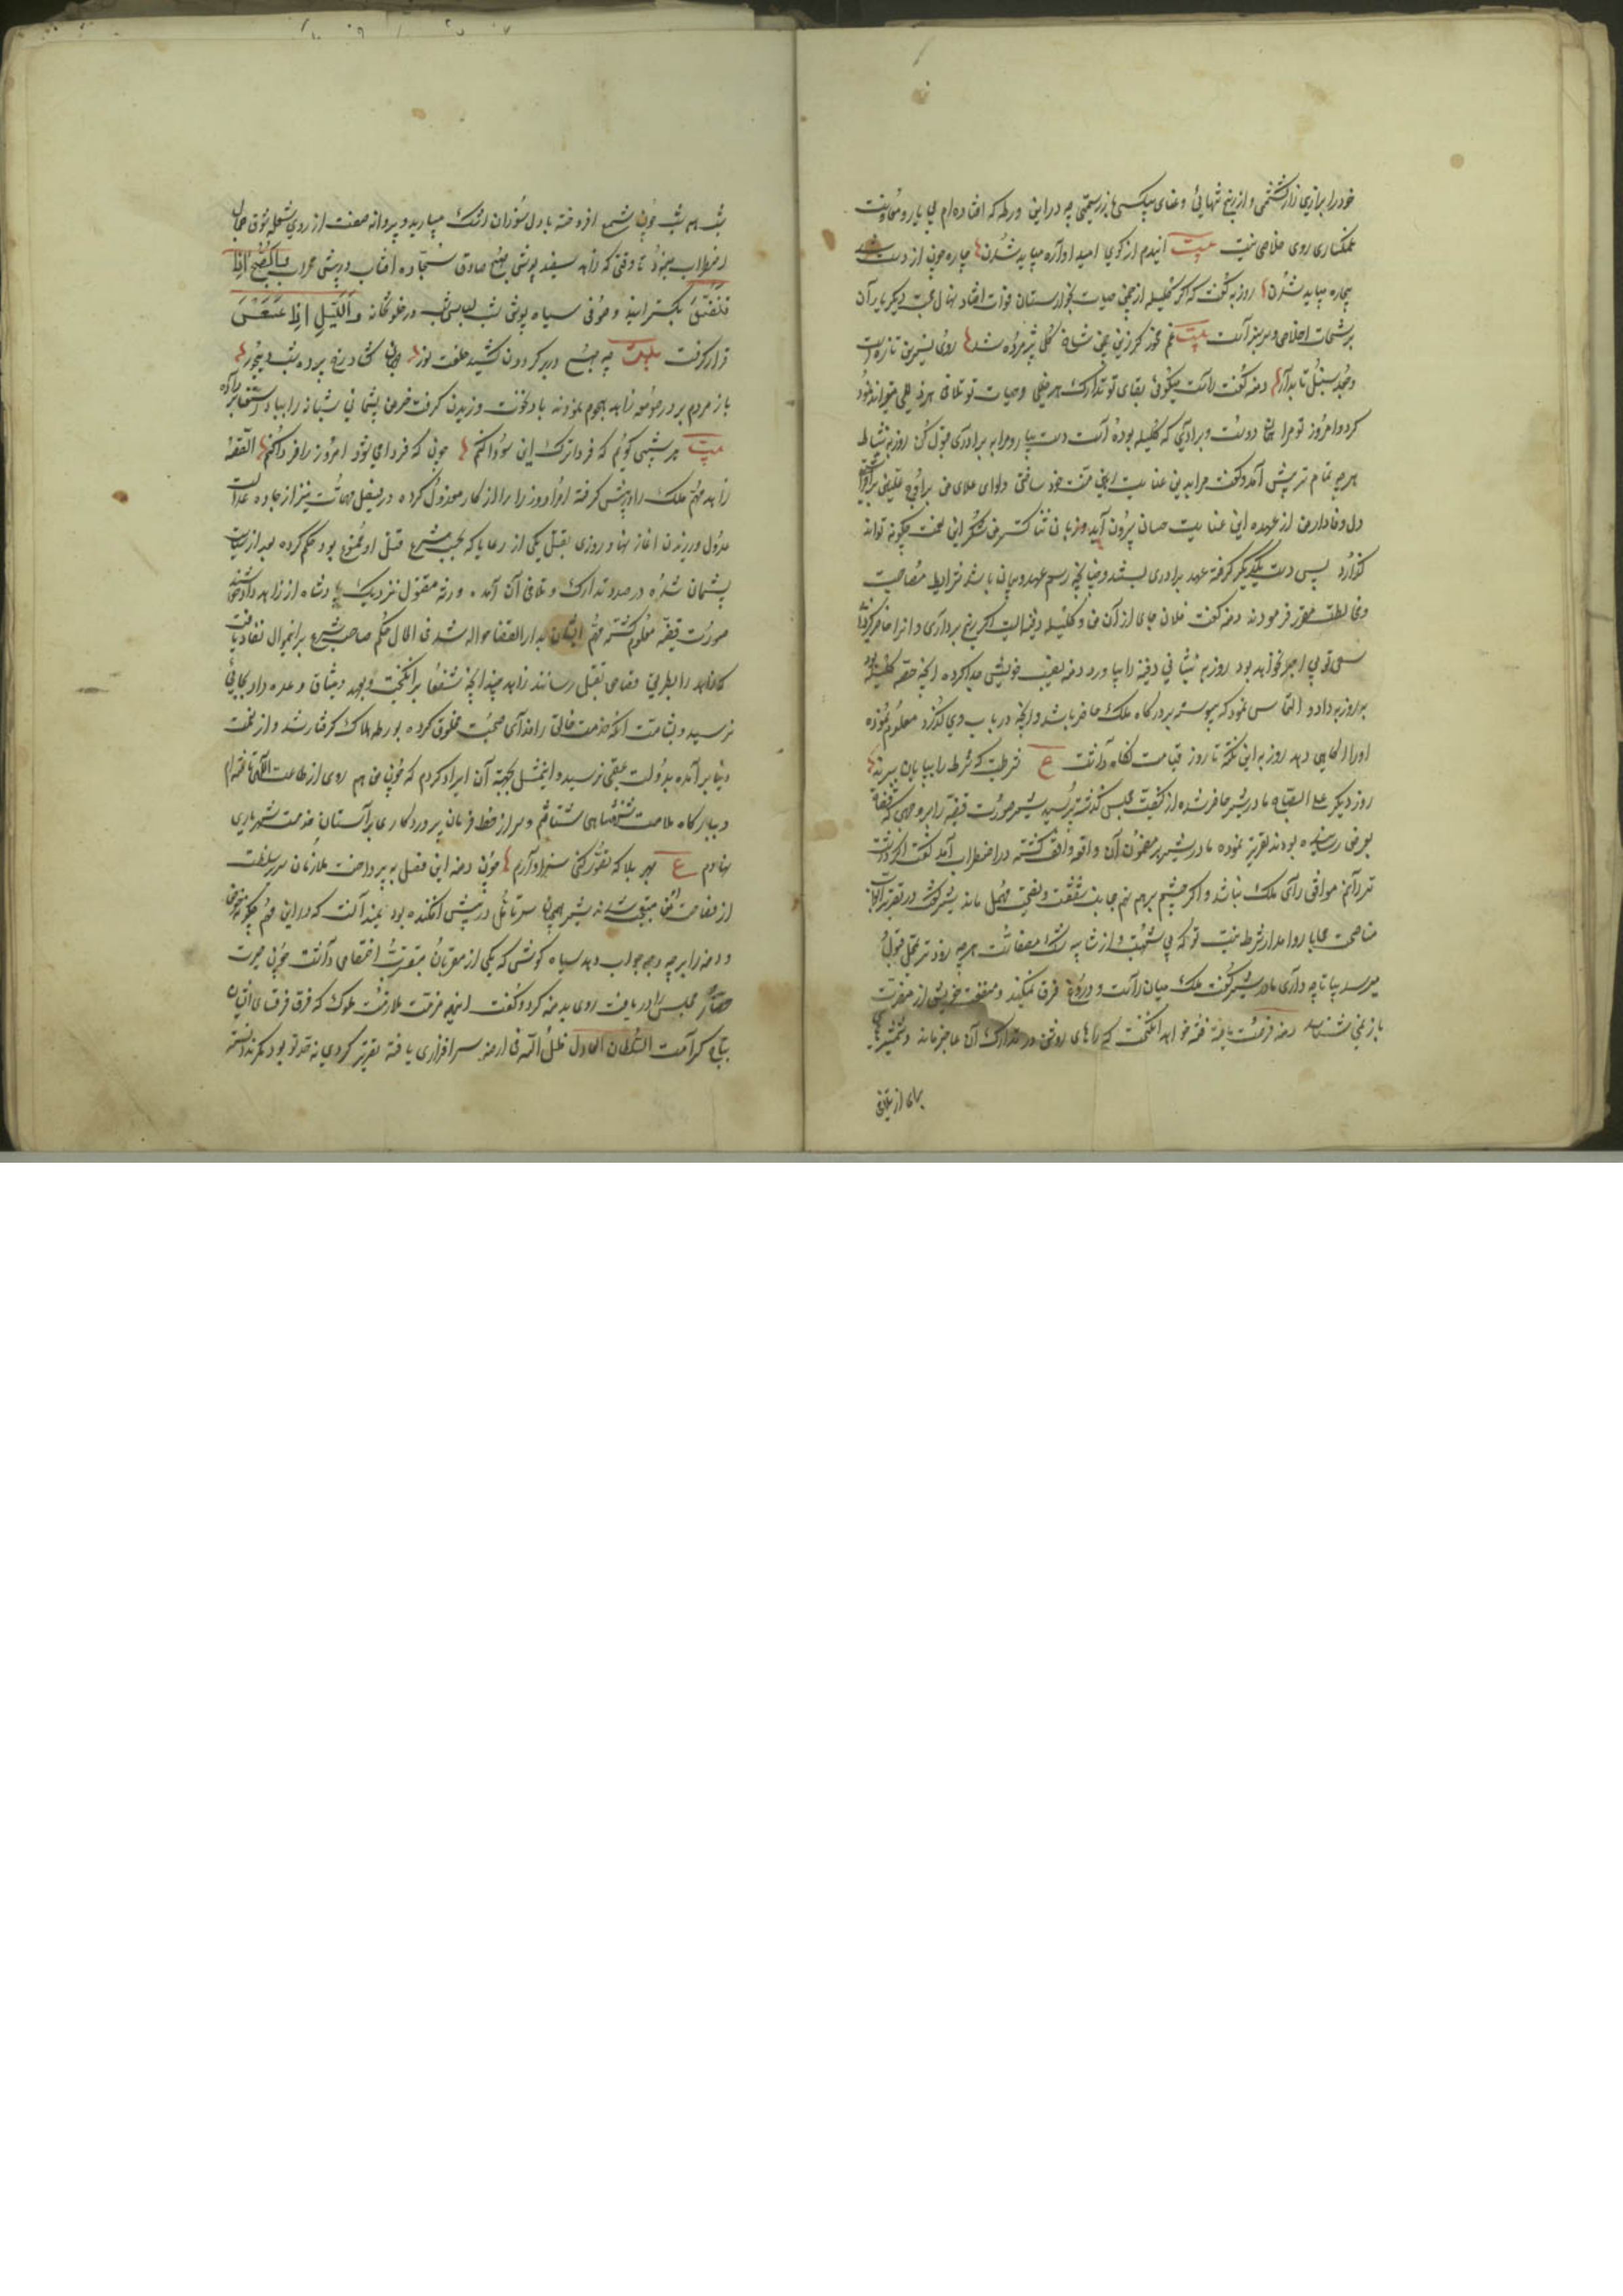 خود را بزاری زار کشتمی و از رنج تنهائی و عنای بیکسی باز رستمی چه در این ورطه که افتاده‌ام بی یار و معاونت
غمکساری روی خلاصی نیست بیت ایندم از کوی امید آواره میباید شدن چاره چون از دست شد
بیچاره میباید شدن روزبه گفت که اگر کلیله از چمن حیات بخارستان فوات افتاد نهال محبت دیگر یاران
برشحات اخلاص سرسبز است بیت غم مخور گر زین چمن شاخ گلی پژمرده شد روی نسرین تازه است
و جعد سنبل تابدار دمنه گفت راست میگوئی بقای تو تدارک هر خللی و حیات تو تلافی هر
کرد و امروز تو مرا همان دوست و برادری که کلیله بوده است دست بیا رو مرا به برادری قبول کن روزبه بنشاط
هرچه تمام تر پیش آمد و گفت مرا بدین عنایت رهین منت خود ساختی و لوای
دل وفادار من از عهده این عنایت چسان بیرون آید و زبان ثنا گستر من شکر این نعمت چگونه تواند
گذارد پس دست یکدیگر گرفته عهد برادری بستند و چنانچه رسم عهد و پیمان باشد شرایط مصاحبت
و مخالطت مقرر فرمودند دمنه گفت فلان جای از آن من و کلیله دفینه‌ایست اگر رنج برداری و آنرا حاضر گردانی
سعی تو بی اجر نخواهد بود روزبه بنشانی دفینه را بیاورد دمنه نصیب خویش جدا کرده آنچه حصه کلیله بود
به روزبه داد و التماس نمود که پیوسته بر درگاه ملک حاضر باشد و آنچه در باب وی گذرد معلوم نموده
او را آگاهی دهد روزبه این نکته تا روز قیامت نگاه داشت ع شرطست که شرط را بپایان ببرند
روز دیگر علی الصباح مادر شیر حاضر شده از کیفیت مجلس گذشته پرسید شیر صورت قضیه را بر وجهی که قضاة
بعرض رسانیده بودند تقریر نموده مادر شیر بر مضمون آن واقعه واقف گشته در اضطراب آمد گفت اگر درشت
تر رانم موافق رای ملک نباشد و اگر چشم بر هم نهم جانب شفقت و نصیحت مهمل ماند شیر گفت در تقریر ابواب
مناصحت محابا روا مدار شرط نیست تو که بی شبهت و از شایبه معراست هرچه زودتر بمحل قبول
میرسد بیا تا چه داری مادر شیر گفت ملک میان راست و دروغ فرق نمیکند و منفعت خویش از مضرت
باز نمی شناسد دمنه فرصت یافته فتنه خواهد انگیخت که رای‌های روشن در تدارک آن عاجز ماند و شمشیرهای
بران از تلافی
شب همه شب چون شمع افروخته با دل سوزان اشک میبارید و پروانه صفت از روی شعله شوق جمال
اضطراب مینمود تا وقتی که زاهد سفید پوش صبح صادق سجاده آفتاب در پیش محراب والصبح اذا
تنفس بگسترانید و صوفی سیاه پوش شب لباس شب در خلوتخانه واللیل اذا عسعس
قرار گرفت بیت چه صبح در بر گردون کشید خلعت نور جهان گشاد رخ پرده شب دیجور
باز مردم بر در صومعه زاهد هجوم نمودند باد نخوت وزیدن گرفت خرمن پشیمانی شبانه را بباد استغنا برداده
بیت هر شبی گویم که فردا ترک این سودا کنم چون که فردا می شود امروز را فردا کنم القصه
زاهد مهم ملک را در پیش گرفته امرا و وزرا را از کار معزول کرده در فیصل مهمات نیز از جاده عدالت
عدول ورزیدن آغاز نهاد روزی بقتل یکی از رعایا که بحسب شرع قتل او ممنوع بود حکم کرده بعد از سیاست
پشیمان شده در صدد تدارک و تلافی آن آمد و ورثه مقتول نزدیک پادشاه از زاهد داد خواستند
صورت قضیه معلوم گشته مهم ایشان بدار القضا حواله شد فی الحال حکم صاحب شرع برانموال نفاذ یافت
که زاهد را بطریق قصاص بقتل رسانند زاهد چندانچه شفعا برانگیخت و بعهد و میثاق وعده داد بجائی
نرسید و بشامت آنکه خدمت خالق را فدای صحبت مخلوق کرده بورطه هلاک گرفتار شد و از نعمت
دنیا برآمده بدولت عقبی نرسید و اینمثل بجهة آن ایراد کردم که چون من هم روی از طاعت الهی تافته‌ام
و بارگاه ملازمت شهنشاهی شتافتم و سر از خط فرمان پروردگاری بر آستان خدمت شهریاری
نهادم ع بهر بلا که تصور کنی سزاوارم چون دمنه این فصل بپرداخت ملازمان سریر سلطنت
از فصاحت او متعجب شدند شیر همچنان سر تامل در پیش افکنده بود نمیدانست که در این مهم چگونه خوض
و دمنه را بر چه وجه جواب دهد سیاه گوش که یکی از مقربان بمزیت اختصاص داشت چون حیرت
حضار مجلس را دریافت روی بدمنه کرد و گفت اینهمه مذمت ملازمت ملوک که فرق فرقدسای ایشان
بتاج کرامت السلطان العادل ظل الله فی ارضه سرافرازی یافته تقریر کردی نه حد تو بود مگر ندانسته